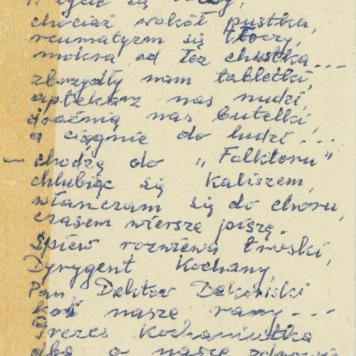 chociaż wokół pustka,
reumatyzm się tłoczy,
mokra od łez chustka...
zbrzydły nam tabletki,
aptekarz nas nudzi,
nas butelki
a ciągnie do ludzi...
— chodzę do "Folktonu"
chlubiąc się Kaliszem,
włanczam się do chóru,
czasem wiersze piszę.
Śpiew rozwiewa troski,
Dyrygent Kochany,
Pan Doktor
Koi nasze rany...
Prezes
dba o nasze zdrowie